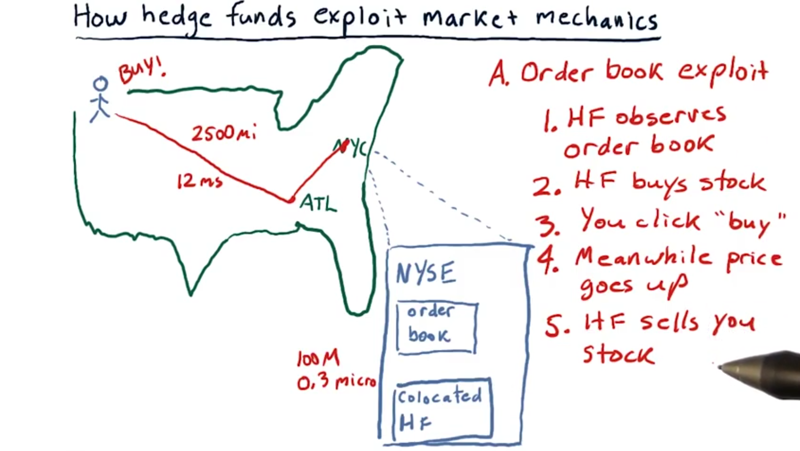 How hedge funds exploit market mechanics
BUY!
2500 mi
12 ms
NYC
ATL
NYSE
order
book
100M
0.3 micro
Colocated
HF
A. Order book exploit
1. HF observes
order book
2. HF buys stock
3. You click "buy"
4. Meanwhile price
goes up
5. HF sells you
stock